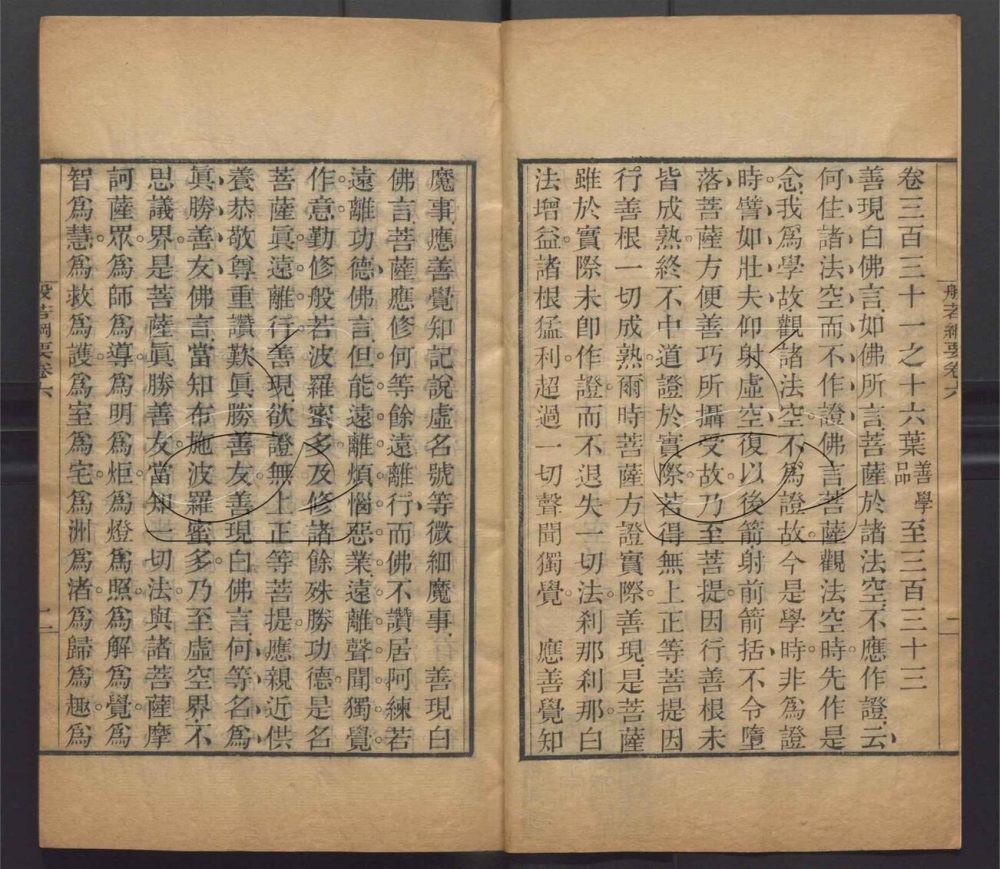 卷三百三十一之十六葉善學品至三百三十三
善現白佛言、如佛所言、菩薩於諸法空、不應作證、云
何住諸法空而不作證。佛言菩薩觀法空時先作是
念、我爲學故、觀諸法空、不爲證故、今是學時、非爲證
時。譬如壯夫仰射虛空、復以後箭射前箭括、不令墮
落、菩薩方便善巧所攝受故、乃至菩提、因行善根未
皆成熟、終不中道證於實際。若得無上正等菩提因
行、善根一切成熟、爾時菩薩方證實際。善現、是菩薩
雖於實際未卽作證、而不退失一切法、剎那剎那、白
法增益。諸根猛利、超過一切聲聞獨覺。　應善覺知
魔事、應善覺知記說虛名號等微細魔事、　善現白
佛言、菩薩應修何等餘遠離行、而佛不讚居阿練若
遠離功德。佛言、但能遠離煩惱惡業、遠離聲聞獨覺
作意、勤修般若波羅蜜多、及修諸餘殊勝功德、是名
菩薩眞遠離行。善現、欲證無上正等菩提、應親近供
養恭敬尊重讚歎眞勝善友。善現白佛言、何等名爲
眞勝善友。佛言、當知布施波羅蜜多、乃至虛空界、不
思議界。是菩薩眞勝善友。當知一切法、與諸菩薩摩
訶薩眾。爲師爲導。爲明爲炬。爲燈爲照。爲解爲覺。爲
智爲慧。爲救爲護。爲室爲宅。爲洲爲渚。爲歸爲趣。爲
般若綱要卷六
一
般若綱要卷六
二